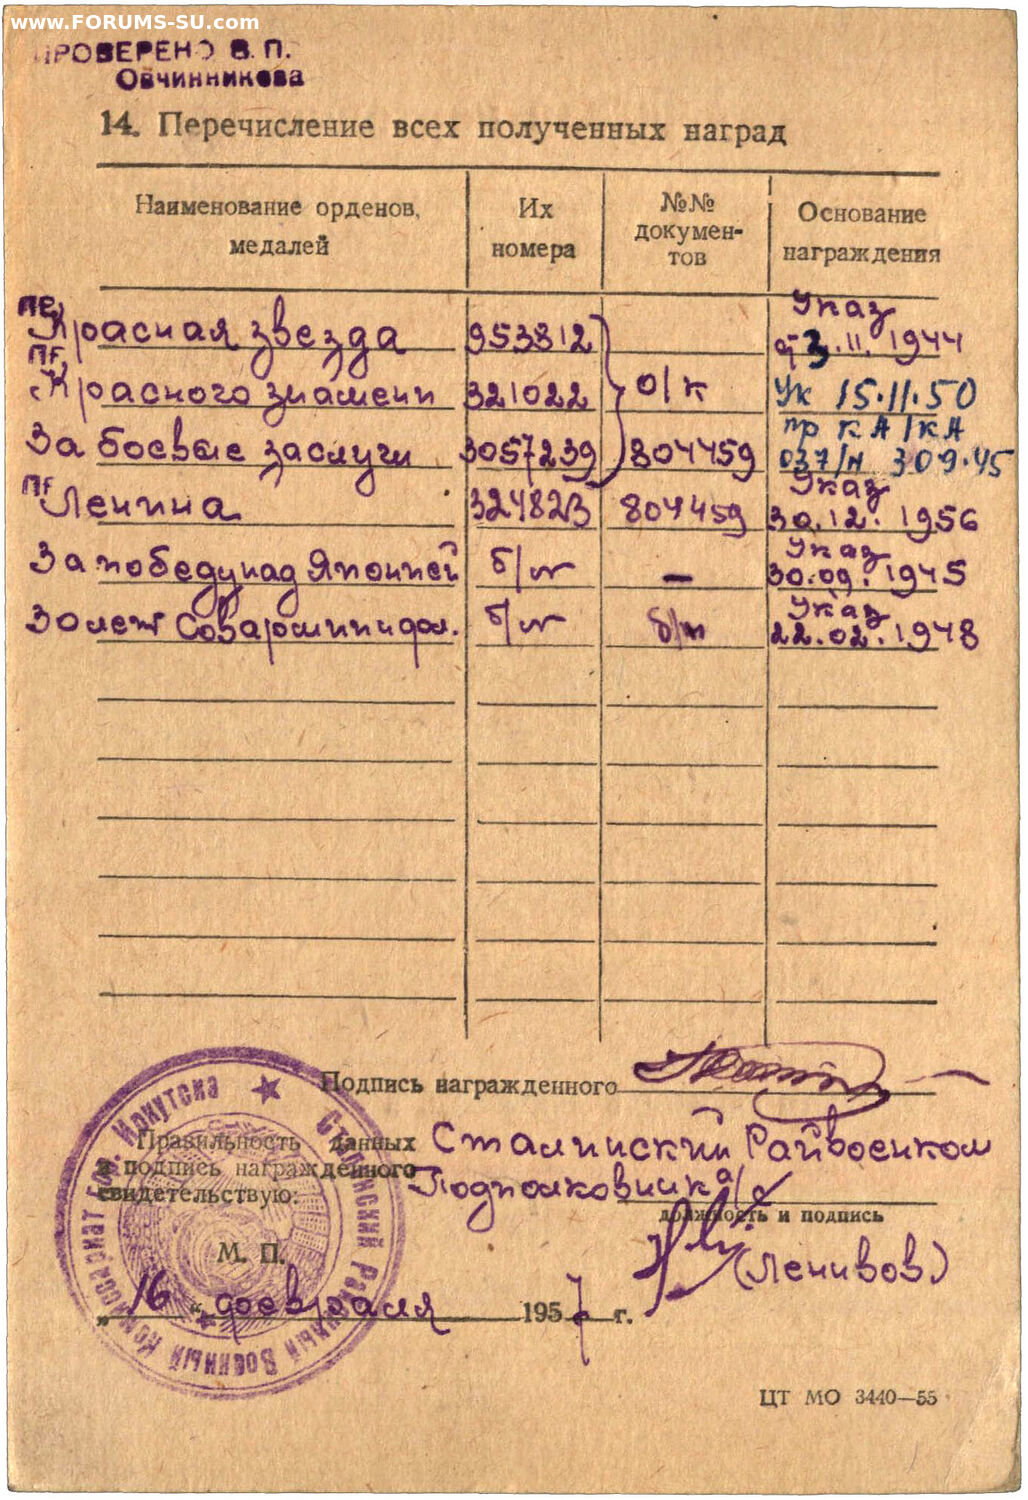 www.FORUMS-SU.com
ПРОВЕРЕНО В. П.
Овчинникова
14. Перечисление всех полученных наград
Наименование орденов, медалей
Их номера
№№ документов
Основание награждения
Красная звезда 953812 Указ от 3.11.1944
Красного знамени 321022 о/к Ук 15.11.50
За боевые заслуги 3057239 804459 пр КА 037/н 309.45
Ленина 324823 804459 Указ 30.12.1956
За победу над Японией б/н — Указ 30.09.1945
30 лет б/н б/н Указ 22.02.1948
Подпись награжденного
Правильность данных
и подпись награжденного
свидетельствую:
Сталинский Райвоенком
Подполковник а/с
должность и подпись
(Ленивов)
М. П.
„16“ февраля 1957 г.
Сталинский Районный Военный Комиссариат гор. Иркутска
ЦТ МО 3440—55